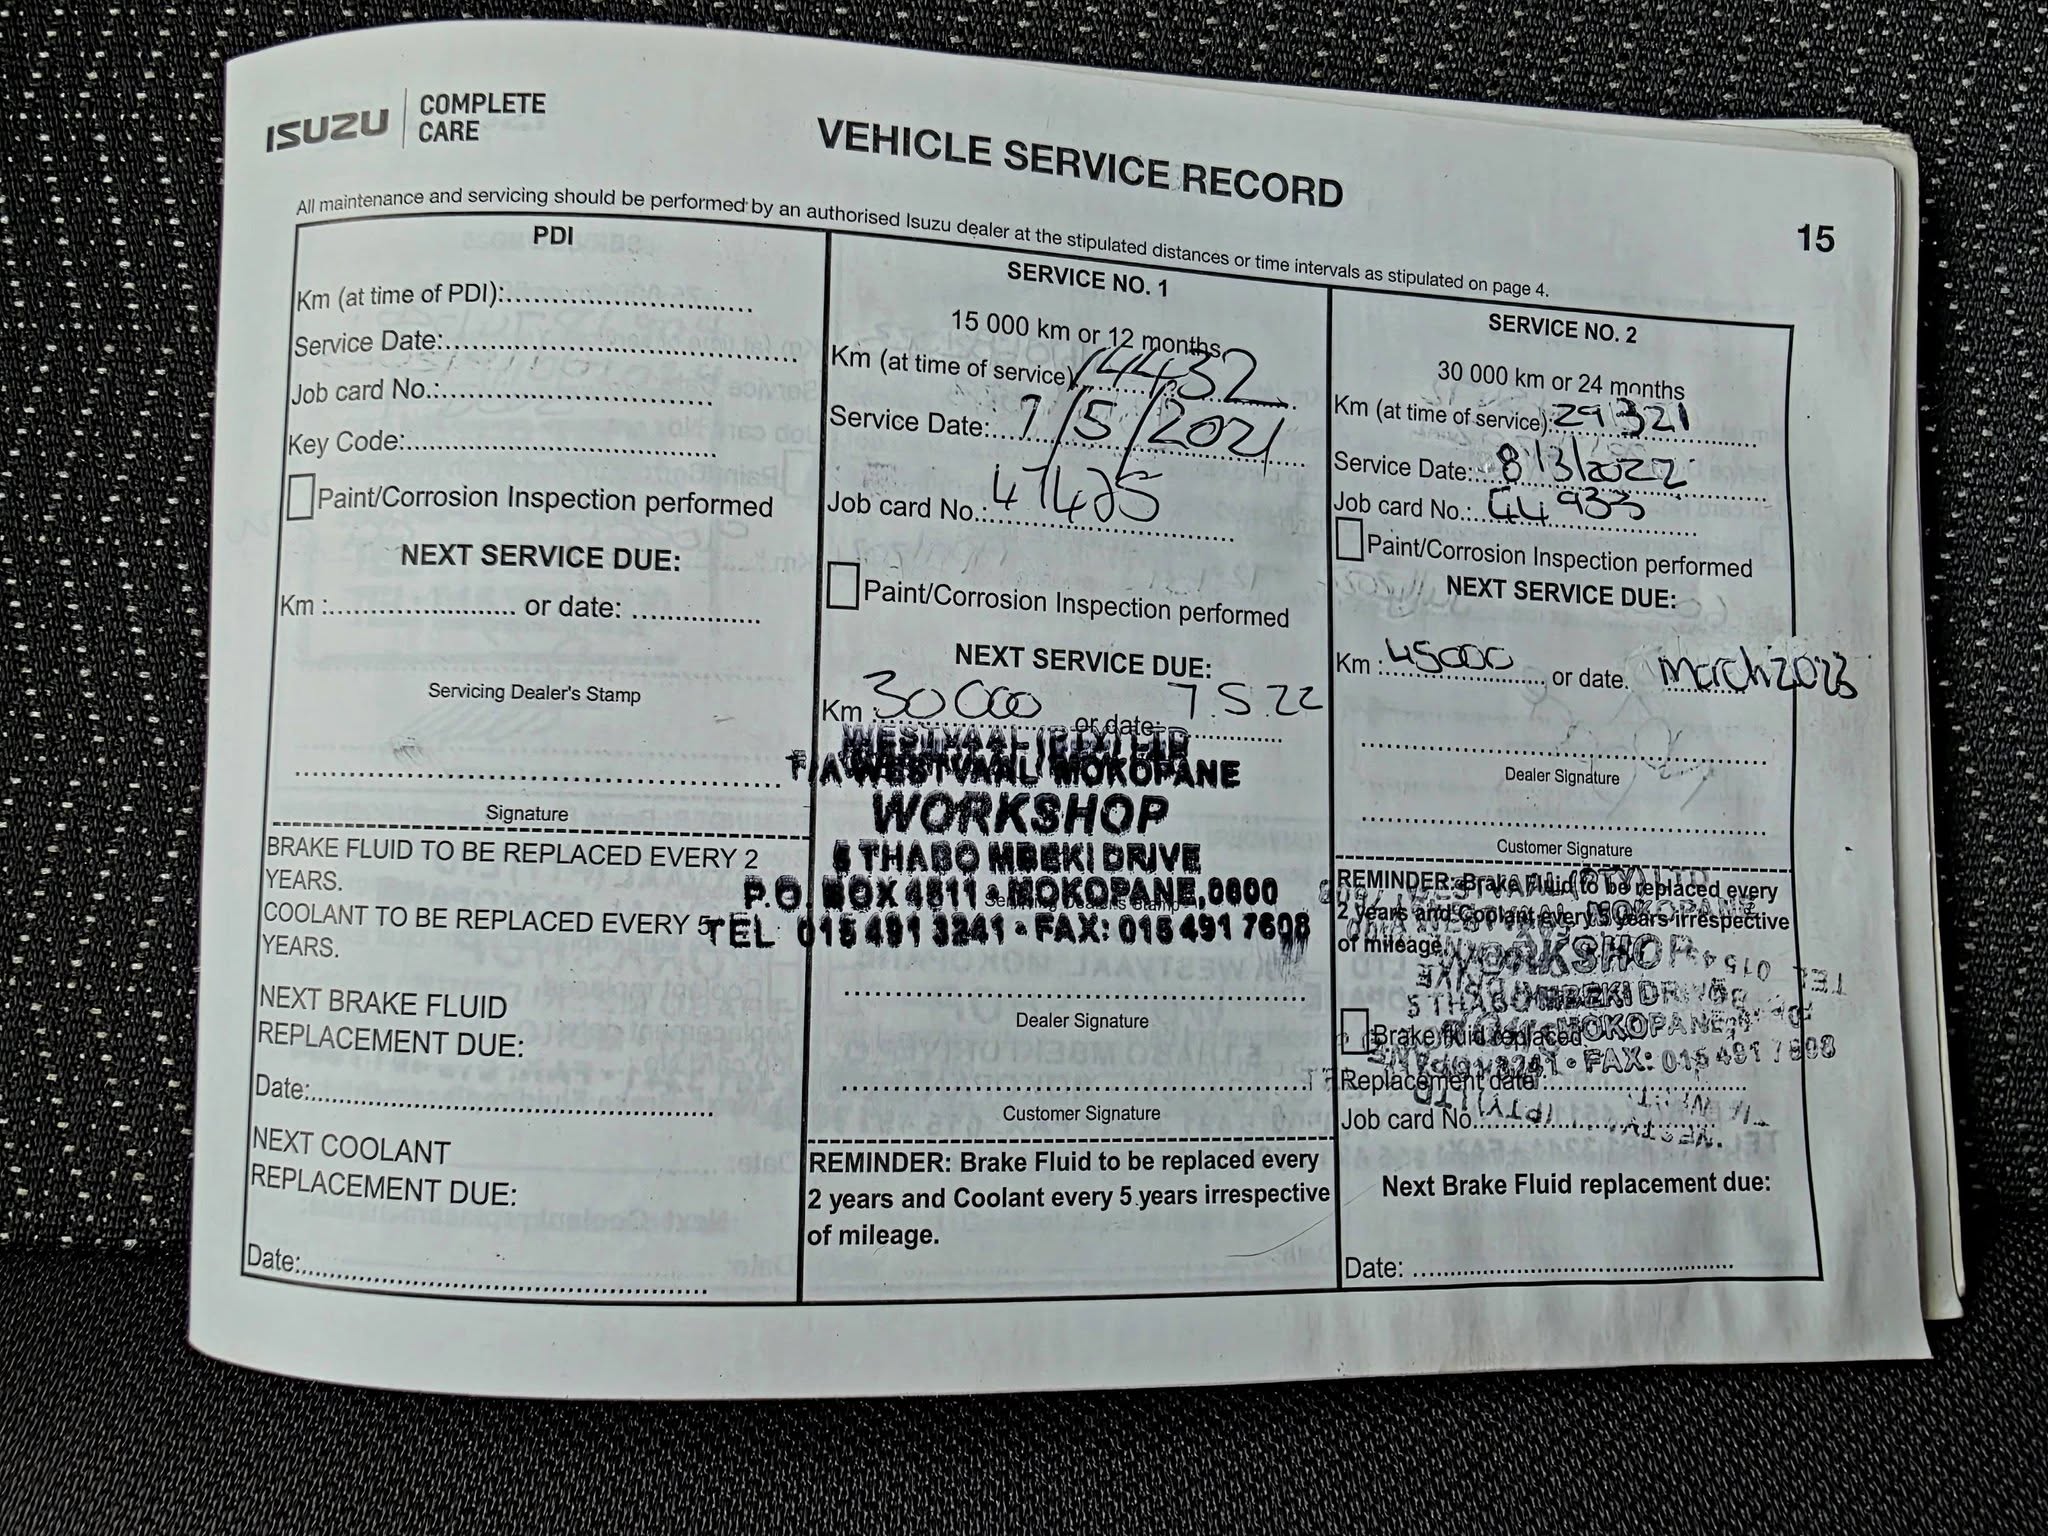 ISUZU COMPLETE CARE
VEHICLE SERVICE RECORD
15
All maintenance and servicing should be performed by an authorised Isuzu dealer at the stipulated distances or time intervals as stipulated on page 4.
PDI
Km (at time of PDI):
Service Date:
Job card No.:
Key Code:
Paint/Corrosion Inspection performed
NEXT SERVICE DUE:
Km : or date:
Servicing Dealer's Stamp
Signature
BRAKE FLUID TO BE REPLACED EVERY 2
YEARS.
COOLANT TO BE REPLACED EVERY 5
YEARS.
NEXT BRAKE FLUID
REPLACEMENT DUE:
Date:
NEXT COOLANT
REPLACEMENT DUE:
Date:
SERVICE NO. 1
15 000 km or 12 months
Km (at time of service) 14432
Service Date: 7/5/2021
Job card No.:
Paint/Corrosion Inspection performed
NEXT SERVICE DUE:
Km : 30000 or date: 7.5.22
WESTVAAL (PTY) LTD
T/A WESTVAAL MOKOPANE
WORKSHOP
5 THABO MBEKI DRIVE
P.O. BOX 4811 • MOKOPANE, 0600
TEL 015 491 3241 • FAX: 015 491 7608
Dealer Signature
Customer Signature
REMINDER: Brake Fluid to be replaced every
2 years and Coolant every 5 years irrespective
of mileage.
SERVICE NO. 2
30 000 km or 24 months
Km (at time of service): 29321
Service Date: 8/3/2022
Job card No.: 44933
Paint/Corrosion Inspection performed
NEXT SERVICE DUE:
Km : 45000 or date. March 2023
Dealer Signature
Customer Signature
REMINDER: Brake Fluid to be replaced every
2 years and Coolant every 5 years irrespective
of mileage.
WORKSHOP
5 THABO MBEKI DRIVE
MOKOPANE
FAX: 015 491 7608
Brake fluid replaced
Replacement date:
Job card No.
Next Brake Fluid replacement due:
Date: